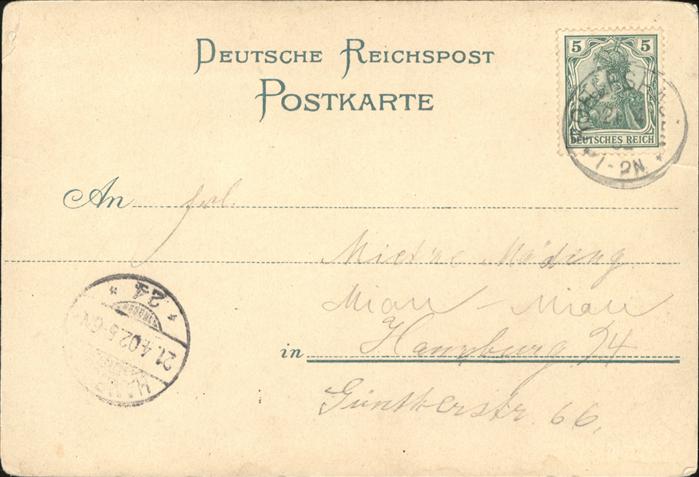 DEUTSCHE REICHSPOST
POSTKARTE
5 5
DEUTSCHES REICH
1-2N
An Frl.
Möding
Miau - Miau
in Hamburg 24
Güntherstr. 66.
21.4.02.5-6N
* 24 *